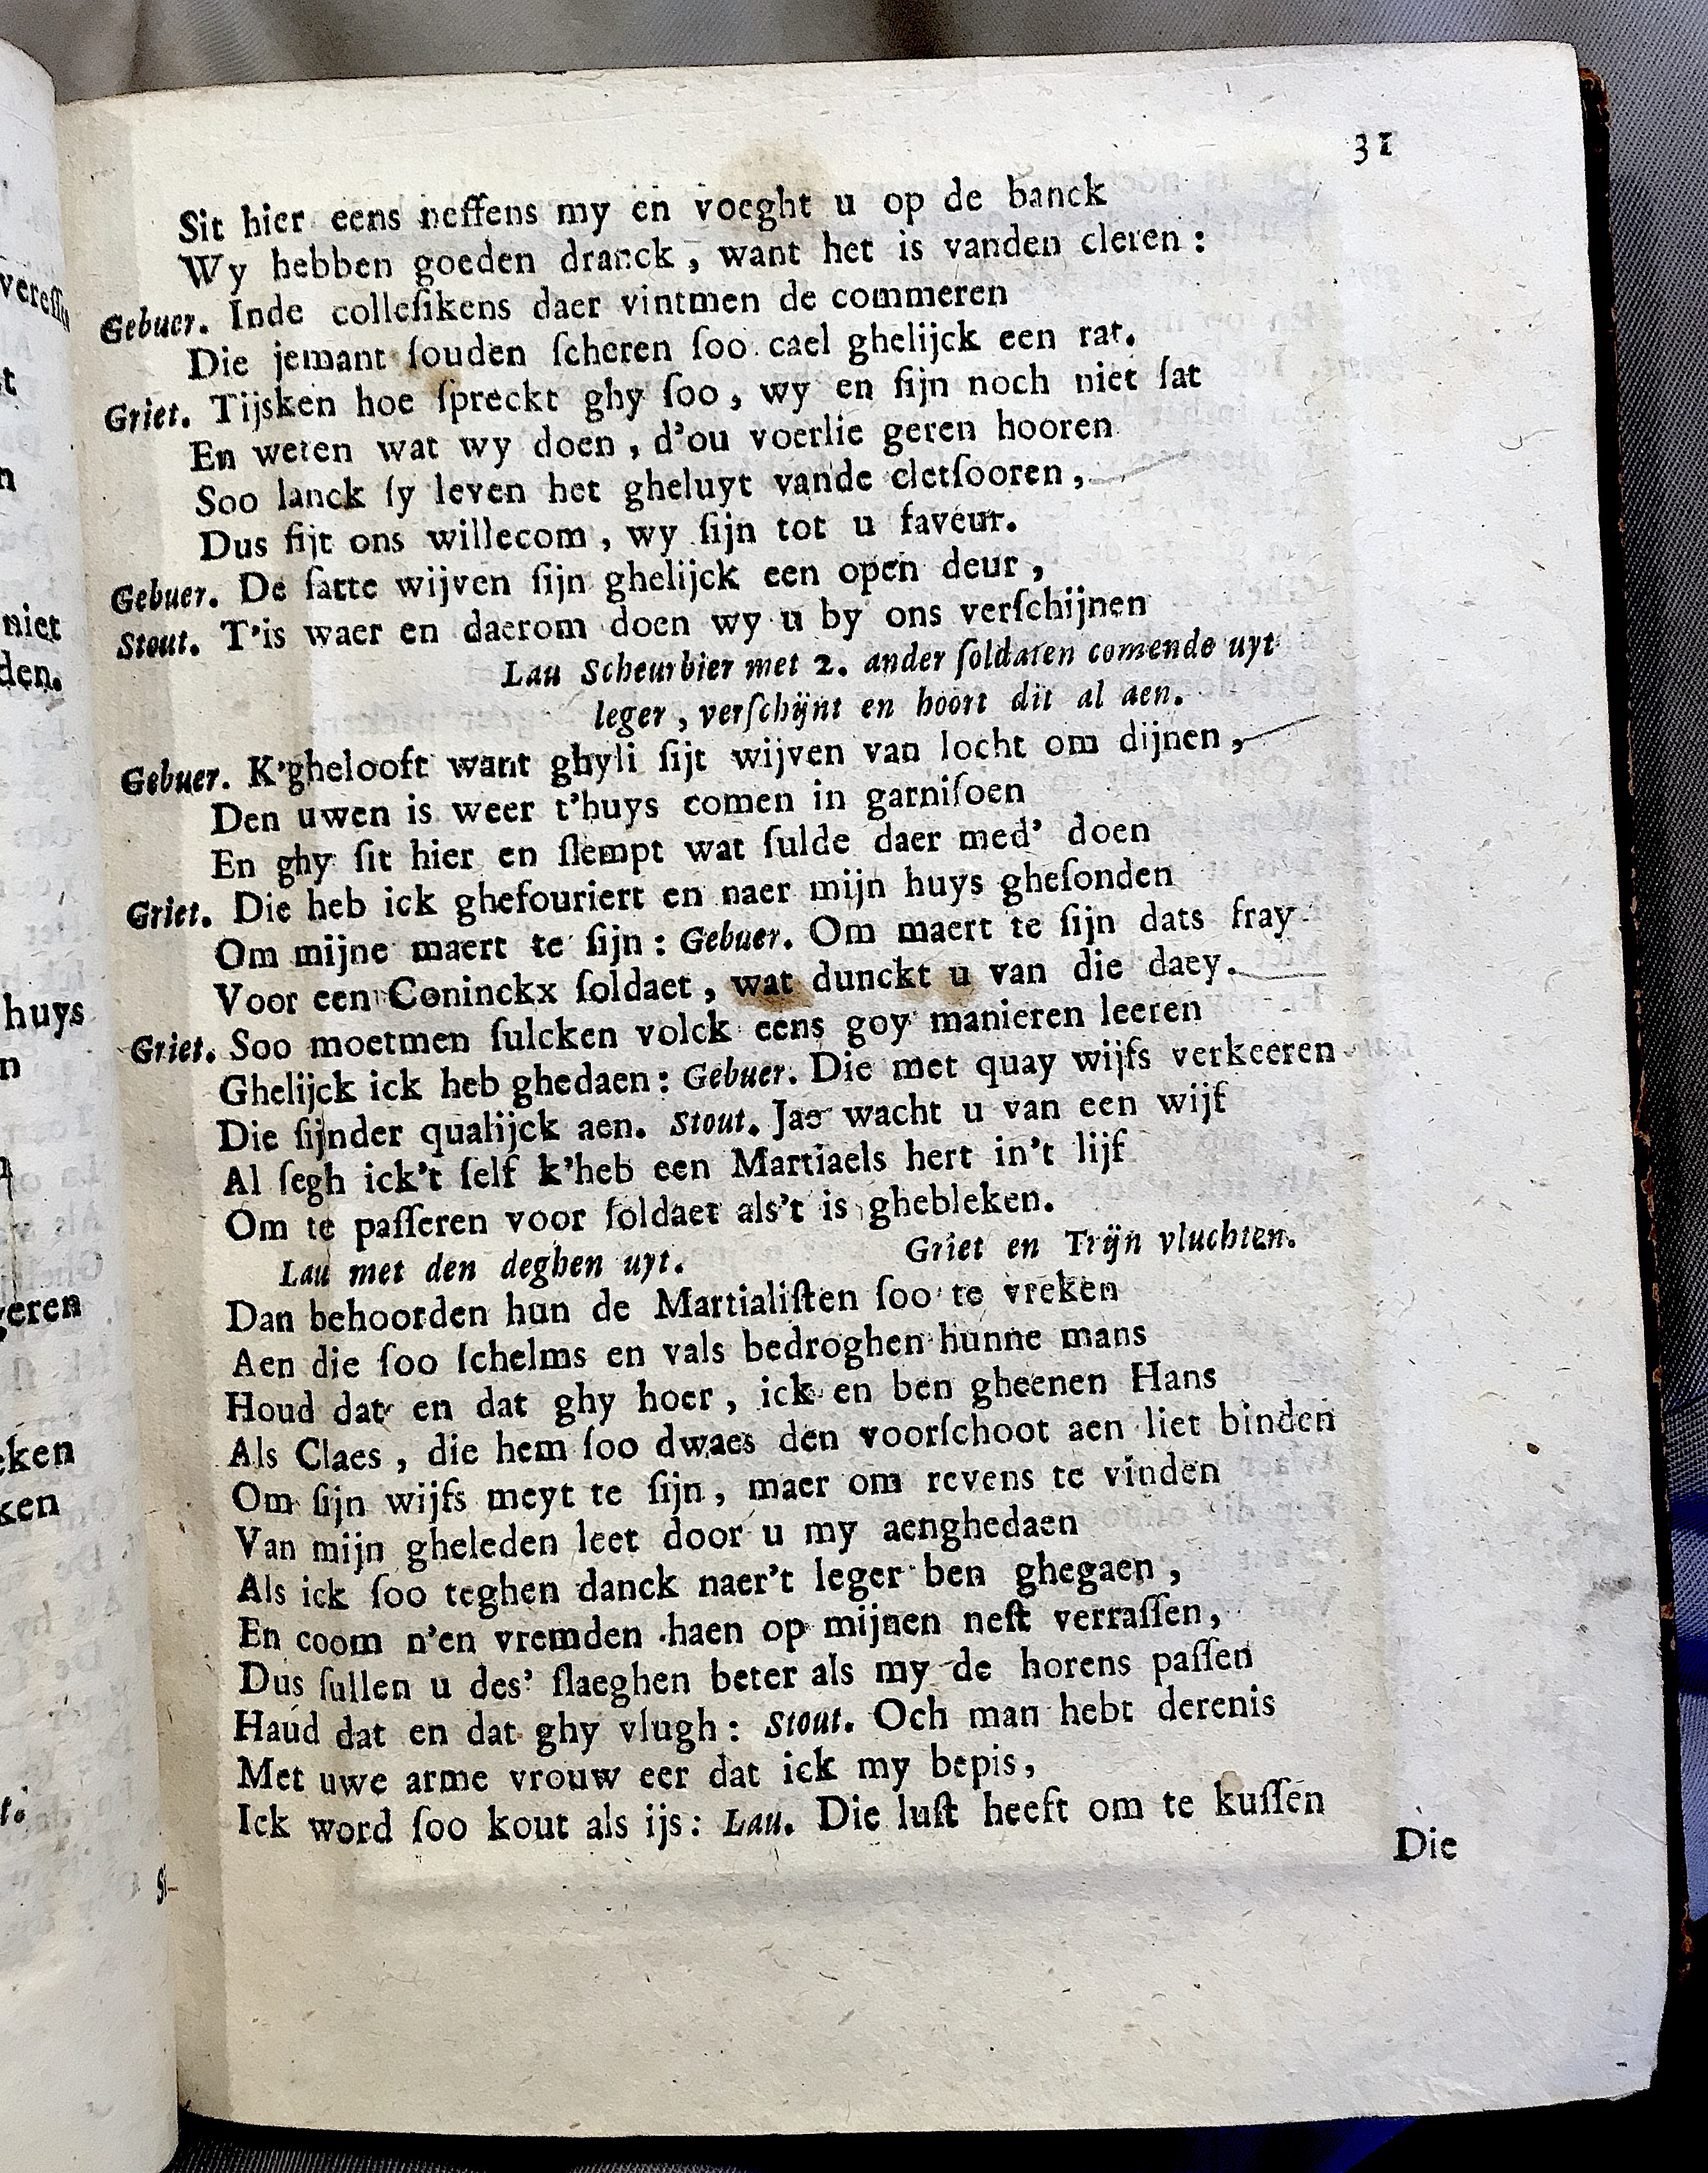 31
Sit hier eens neffens my en voeght u op de banck
Wy hebben goeden dranck, want het is vanden cleren :
Gebuer. Inde colleſikens daer vintmen de commeren
Die jemant ſouden ſcheren ſoo cael ghelijck een rat.
Griet. Tijsken hoe ſpreckt ghy ſoo, wy en ſijn noch niet ſat
En weten wat wy doen, d'ou voerlie geren hooren
Soo lanck ſy leven het gheluyt vande cletſooren,
Dus ſijt ons willecom, wy ſijn tot u faveur.
Gebuer. De ſatte wijven ſijn ghelijck een open deur,
Stout. T'is waer en daerom doen wy u by ons verſchijnen
Lau Scheurbier met 2. ander ſoldaten comende uyt
leger, verſchijnt en hoort dit al aen.
Gebuer. K'ghelooft want ghyli ſijt wijven van locht om dijnen,
Den uwen is weer t'huys comen in garniſoen
En ghy ſit hier en ſlempt wat ſulde daer med' doen
Griet. Die heb ick ghefouriert en naer mijn huys gheſonden
Om mijne maert te ſijn : Gebuer. Om maert te ſijn dats fray
Voor een Coninckx ſoldaet, wat dunckt u van die daey.
Griet. Soo moetmen ſulcken volck eens goy manieren leeren
Ghelijck ick heb ghedaen : Gebuer. Die met quay wijfs verkeeren
Die ſijnder qualijck aen. Stout. Jae wacht u van een wijf
Al ſegh ick't ſelf k'heb een Martiaels hert in't lijf
Om te paſſeren voor ſoldaet als't is ghebleken.
Griet en Trijn vluchten.
Lau met den deghen uyt.
Dan behoorden hun de Martialiſten ſoo te vreken
Aen die ſoo ſchelms en vals bedroghen hunne mans
Houd dat en dat ghy hoer, ick en ben gheenen Hans
Als Claes, die hem ſoo dwaes den voorſchoot aen liet binden
Om ſijn wijfs meyt te ſijn, maer om revens te vinden
Van mijn gheleden leet door u my aenghedaen
Als ick ſoo teghen danck naer't leger ben ghegaen,
En coom n'en vremden haen op mijnen neſt verraſſen,
Dus ſullen u des' ſlaeghen beter als my de horens paſſen
Haud dat en dat ghy vlugh : Stout. Och man hebt derenis
Met uwe arme vrouw eer dat ick my bepis,
Ick word ſoo kout als ijs : Lau. Die luſt heeft om te kuſſen
Die
niet
den.
huys
geren
eken
ken